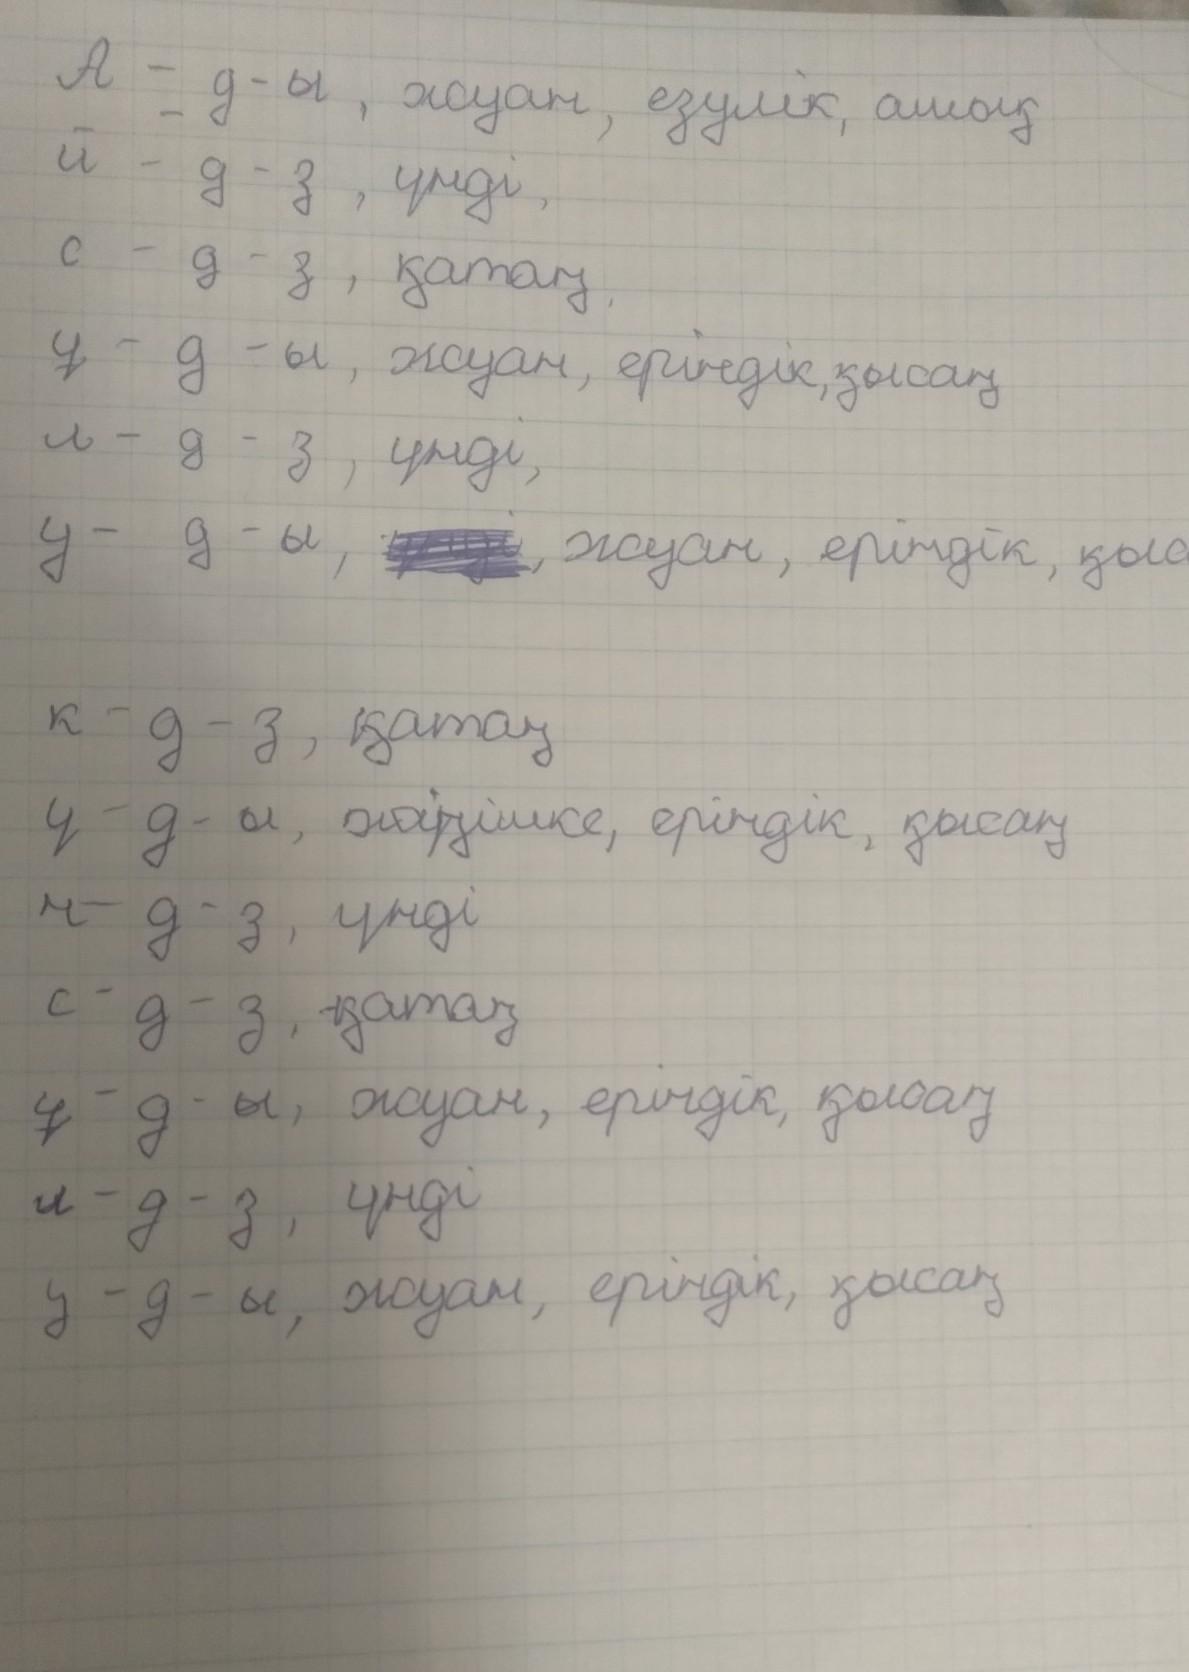 А - д-ы, жуан, езулік, ашық
й - д-з, үнді,
с - д-з, қатаң,
ұ - д-ы, жуан, еріндік, қысаң
л - д-з, үнді,
у - д-ы, жуан, еріндік, қыс
к - д-з, қатаң
ү - д-ы, жіңішке, еріндік, қысаң
н - д-з, үнді
с - д-з, қатаң
ұ - д-ы, жуан, еріндік, қысаң
л - д-з, үнді
у - д-ы, жуан, еріндік, қысаң